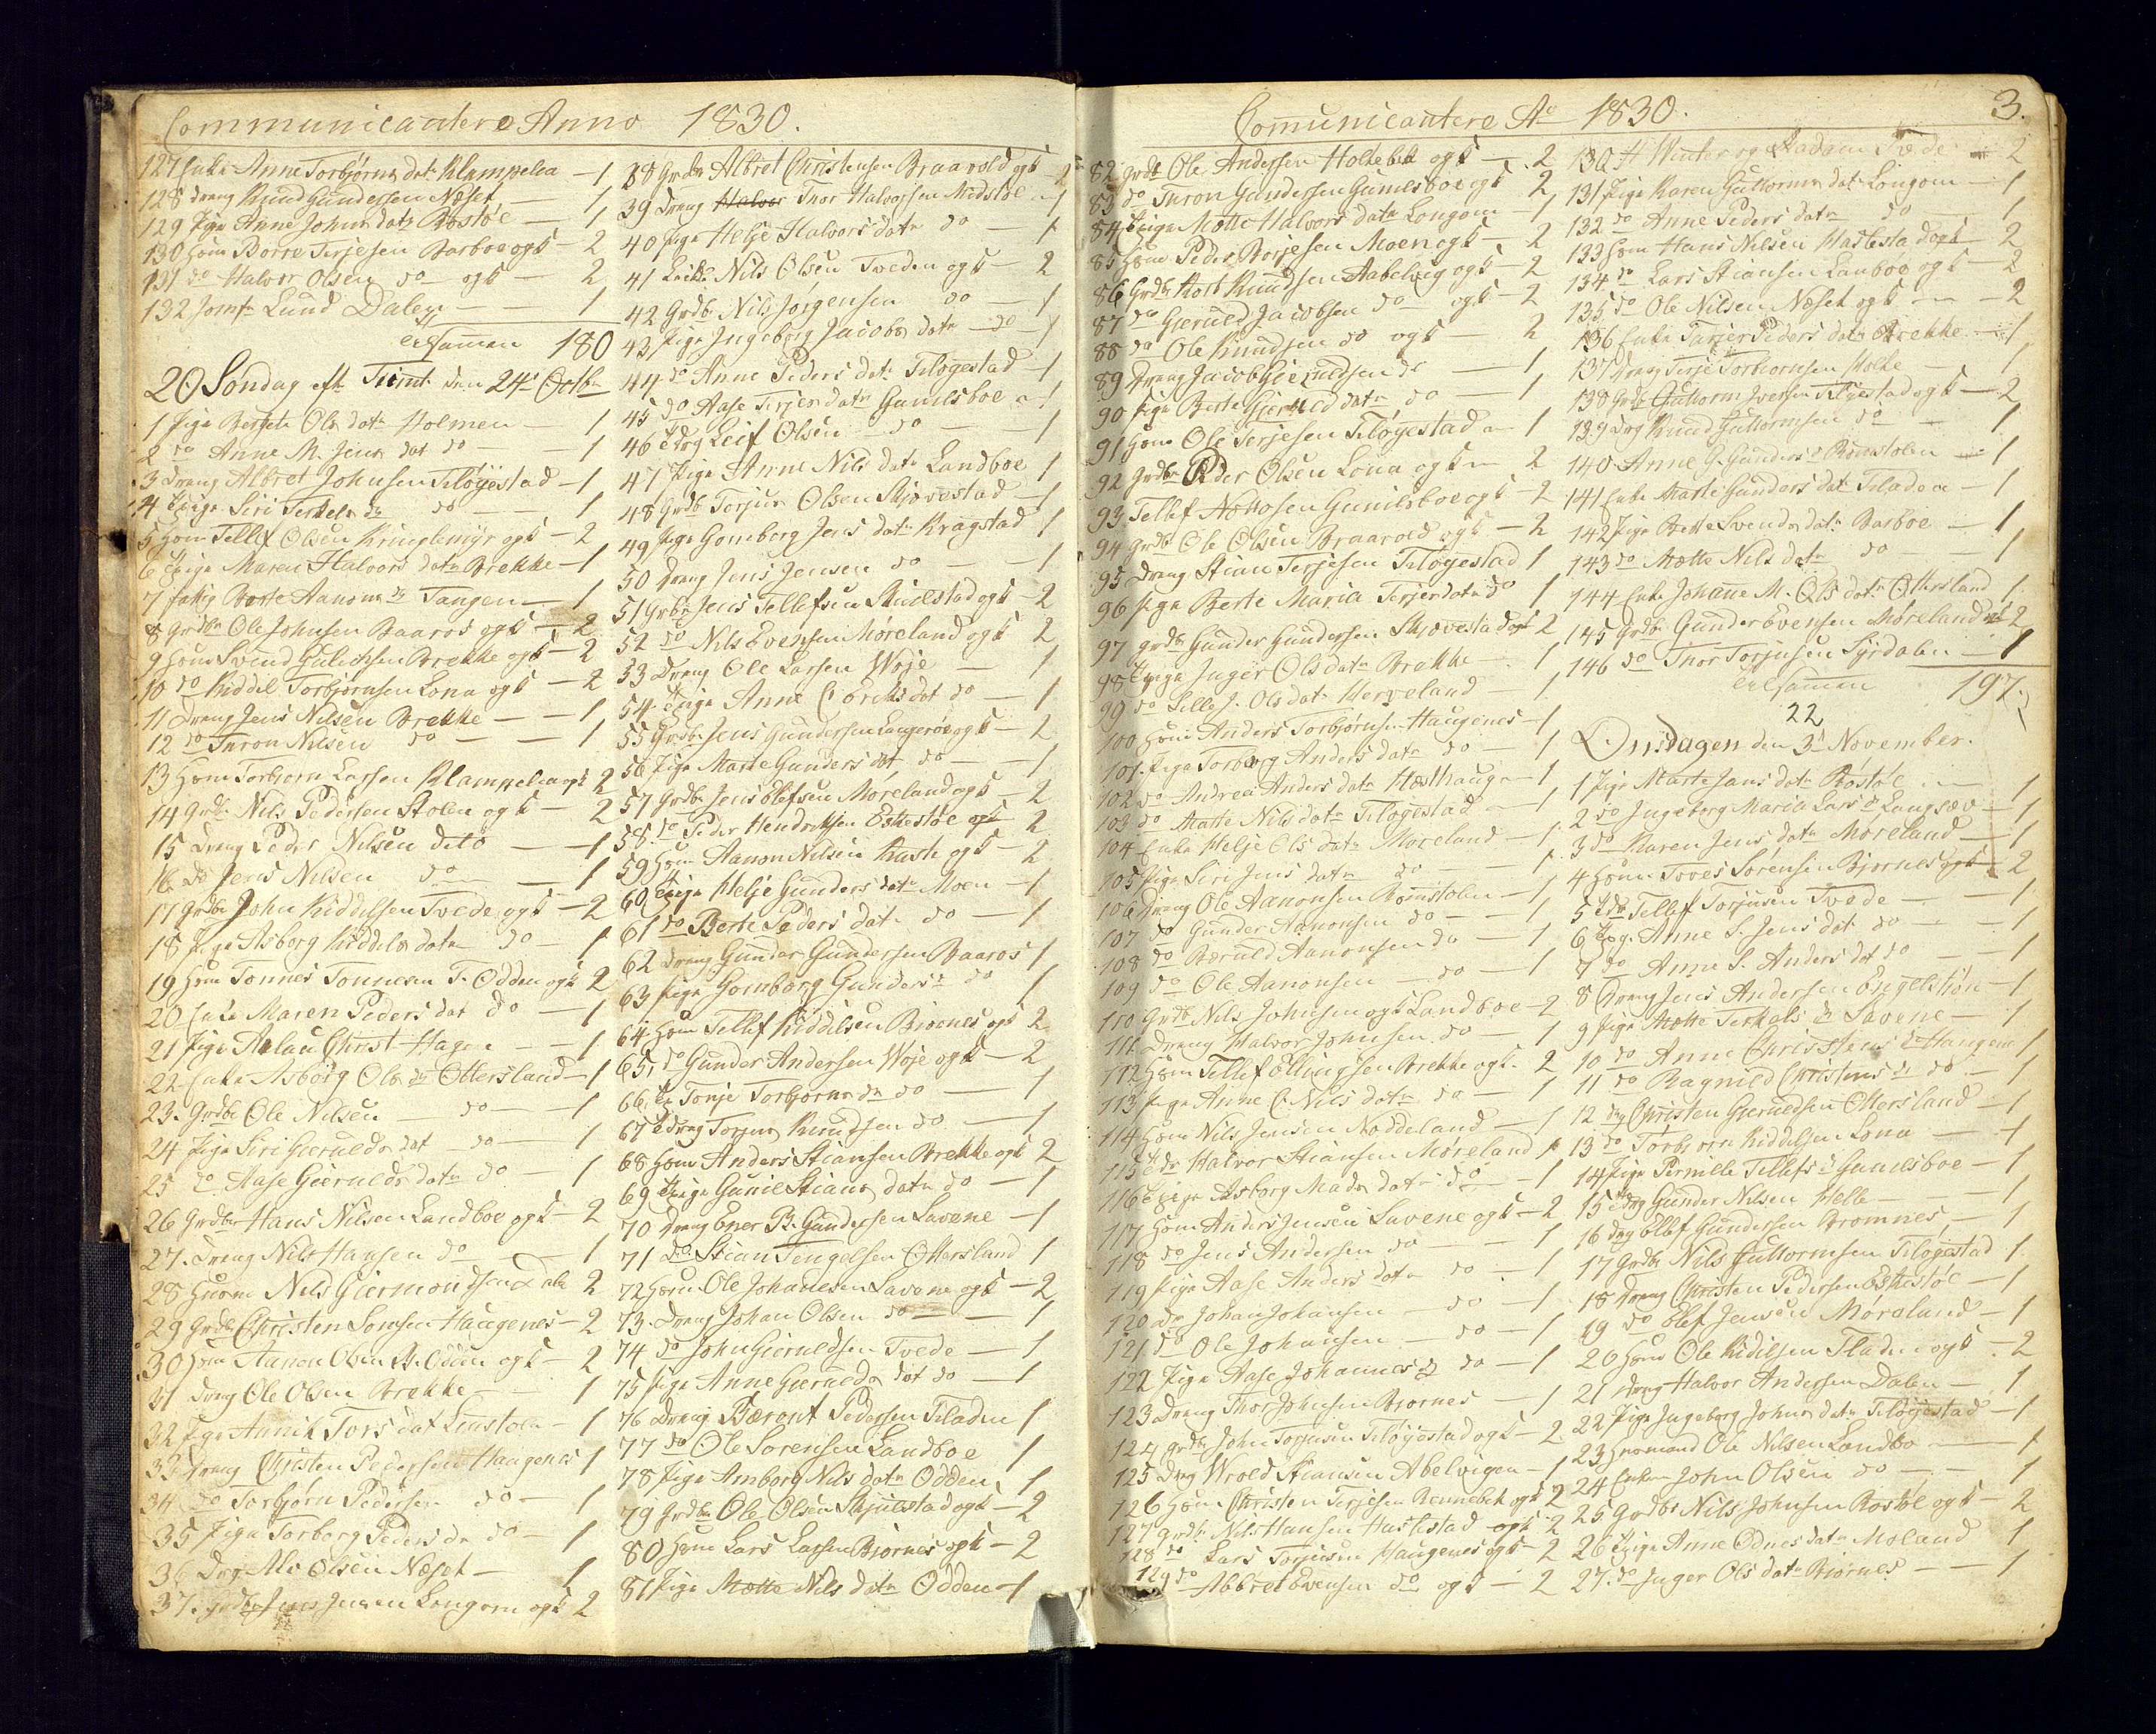 Communicantere Anno 1830.
127 Enke Anne Torbjørns dat: Klampelea — 1
128 dreng Knud Gundersen Næset — 1
129 Pige Anne Johns datr Rostøe — 1
130 Hum Borre Terjesen Barboe ogk — 2
131 do Halvor Olsen do ogk — 2
132 Jomfr Lund Dalen — 1
Ersamen 180
20 Søndag eft: Trint: den 24de Octbr
1 Pige Bergete Ols datr Holmen — 1
2 do Anne M. Jens dat do — 1
3 Dreng Albret Johnsen Tiløyestad — 1
4 Pige Siri Terkels dr do — 1
5 Hum Tellef Olsen Kringlemyr ogk — 2
6 Pige Maren Halvors datr Brekke — 1
7 fattig Berte Aanons dr Tangen — 1
8 Grdbr Ole Johnsen Baaros ogk — 2
9 Hum Svend Gulichsen Brekke ogk — 2
10 do Kiddel Torbjørnsen Lona ogk — 2
11 Dreng Jens Nilsen Brekke — 1
12 do Thron Nilsen do — 1
13 Hum Torbjorn Larsen Klampelea ogk 2
14 Grdbr Nils Pedersen Stølen ogk — 2
15 Dreng Peder Nilsen dito — 1
16 do Jens Nilsen do — 1
17 Grdbr John Kiddelsen Tvede ogk — 2
18 Pige Asborg Kiddels datr do — 1
19 Hum Tonnes Tonnesen T. Odden ogk 2
20 Enke Maren Peders dat do — 1
21 Pige Aslau Christ Hagen — 1
22 Enke Asborg Ols dr Ottersland — 1
23. Grdbr Ole Nilsen do — 1
24 Pige Siri Gieruldr dat do — 1
25 do Aase Gierulds datr do — 1
26 Grdbr Hans Nilsen Landboe ogk — 2
27. Dreng Nils Hansen do — 1
28 Huum Nils Giermondsen Dale 2
29 Grdbr Christen Lomsen Haugenes — 2
30 Hum Aanon Olsen St. Odden ogk — 2
31 Dreng Ole Olsen Brekke — 1
32 Pige Annik Tors dat Linstølen — 1
33 Dreng Christen Pedersen Haugenes 1
34 do Torbjørn Pedersen do — 1
35 Pige Torborg Peders dr do — 1
36 Drg Alv Olsen Næset — 1
37. Grdbr Jens Jensen Longom ogk 2
38 Grdbr Albret Christensen Braarvold ogk — 2
39 Dreng Halvor Thor Halvorsen Midstøe — 1
40 Pige Helje Halvors datr do — 1
41 Leid: Nils Olsen Tveden ogk — 2
42 Grdbr Nils Jørgensen do — 1
43 Pige Ingeborg Jacobs datr do — 1
44 do Anne Peders datr Tiløgestad — 1
45 do Aase Terjes datr Gunilsboe — 1
46 Edrg Leif Olsen do — 1
47 Pige Anne Nils datr Landboe 1
48 Grdbr Torjus Olsen Skjovestad — 1
49 Pige Gomborg Jens datr Kragstad 1
50 Dreng Jens Jensen do — 1
51 Grdbr Jens Tellefsen Skulestad ogk — 2
52 do Nils Evensen Møreland ogk 2
53 Dreng Ole Larsen Woje — 1
54 Epige Anne Chriks dat do — 1
55 Grdbr Jens Gundersen Langerøe ogk — 2
56 Pige Marte Gunders dat do — 1
57 Grdbr Jens Olefsen Moreland ogk — 2
58 do Peder Hendriksen Eskestøe ogk 2
59 Hum Aanon Nilsen Kaste ogk — 2
60 Epige Helje Gunders datr Moen — 1
61 do Berte Peders datr do — 1
62 Dreng Gunder Gundersen Baaros 1
63 Pige Gomborg Gunders dr do 1
64 Hum Tellef Kiddelsen Biornes ogk 2
65 do Gunder Andersen Woje ogk — 2
66 Ep Tonje Torbjørns dr do — 1
67 Edreng Torjus Knudsen do — 1
68 Hum Anders Stiansen Brekke ogk 2
69 Epige Gunil Stians datr do — 1
70 Dreng Ener B. Gundersen Savene — 1
71 do Stian Tengelsen Ottersland 1
72 Hum Ole Johannesen Savene ogk — 2
73. Dreng Johan Olsen do — 1
74 do John Gieruldsen Tvede — 1
75 Pige Anne Gierulds dat do — 1
76 Dreng Bæront Pedersen Fladen 1
77 do Ole Sørensen Landboe 1
78 Pige Amborg Nils datr Odden 1
79 Grdbr Ole Olsen Skjulestad ogk — 2
80 Hum Lars Larsen Bjornes ogk — 2
81 Pige Mette Nils datr Odden — 1
Comunicantere Ao 1830. 3.
82 Grdbr Ole Andersen Holtebek ogk — 2
83 do Thron Gundersen Gunilsboe ogk 2
84 Epige Mette Halvors datr Longom — 1
85 Hum Peder Børjesen Moen ogk — 2
86 Grdbr Roth Knudsen Aabelvig ogk — 2
87 do Gieruld Jacobsen do ogk — 2
88 do Ole Knudsen do ogk — 2
89 Dreng Jacob Gieruldsen do — 1
90 Pige Berte Gieruld datr do — 1
91 Hum Ole Terjesen Tiløyestad — 1
92 Grdbr Peder Olsen Lona ogk — 2
93. Tellef Nottosen Gunilsboe ogk — 2
94 Grdbr Ole Olsen Braarvold ogk — 2
95 Dreng Stian Terjesen Tiløyestad 1
96 Pige Berte Maria Terjes datr do 1
97 Grdbr Gunder Gundersen Skjovestad ogk 2
98 Epige Inger Ols datr Brekke — 1
99 do Sille J. Ols datr Herveland — 1
100 Hum Anders Torbjørnsen Haugenes — 1
101. Pige Torborg Anders datr do — 1
102 do Andrea Anders datr Hæsthaugen — 1
103 do Marte Nils datr Tiløgestad — 1
104 Enke Helje Ols datr Moreland — 1
105 Pige Siri Jens datr do — 1
106 Dreng Ole Aanonsen Romstolen — 1
107 do Gunder Aanonsen do — 1
108 do Bæruld Aanonsen do — 1
109 do Ole Aanonsen do — 1
110 Grdbr Nils Johnsen ogk Landboe — 2
111 Dreng Halvor Johnsen do — 1
112 Hum Tellef Ellingsen Brekke ogk. 2
113 Pige Anne C. Nils datr do — 1
114 Hum Nils Jensen Nødeland — 1
115 Edr Halvor Stiansen Møreland 1
116 Epige Asborg Mads datr do — 1
117 Hum Anders Jensen Savene ogk — 2
118 do Jens Andersen do — 1
119 Pige Aase Anders datr do — 1
120 Dr Johan Johansen do — 1
121 do Ole Johansen do — 1
122 Pige Aase Johannes dr do — 1
123 Dreng Thor Johnsen Biornes — 1
124 Grdbr John Torjusen Tiløyestad ogk — 2
125 Drg Wrold Stiansen Abelvigen — 1
126 Hum Christen Terjesen Rennebek ogk 2
127 Grdbr Nils Hansen Hastestad ogk 2
128 do Lars Torjusen Haugenes ogk — 2
129 do Abbret Evensen do ogk — 2
130 H Winter og Madam Tvede — 2
131 Pige Karen Guttorms dat Longom — 1
132 do Anne Peders datr do 1
133 Hum Hans Nilsen Hastestad ogk — 2
134 do Lars Stiansen Lanboe ogk — 2
135 do Ole Nilsen Næset ogk — 2
136 Enke Tarjer Peders datr Brekke — 1
137 Dreng Terje Torbiornsen Holte — 1
138 Grdb Guttorm Iversen Tiløyestad ogk — 2
139 Drg Knud Guttormsen do — 1
140 Anne G. Gunders dr Romstolen — 1
141 Enke Marte Gunders dat Fladen — 1
142 Pige Berte Svends datr Barboe — 1
143 do Mette Nils datr do — 1
144 Enke Johane M. Ols datr Ottersland 1
145 Grdbr Gunder Evensen Møreland ogk 2
146 do Thor Torjusen Syrdalen — 1
Ersamen 197.
22
Onsdagen den 3de November.
1 Pige Marte Jans datr Rostøl — 1
2 do Ingeborg Maria Lars dr Langsæv — 1
3 do Karen Jens datr Møreland — 1
4 Hum Toves Sørensen Bjornes ogk — 2
5 Edr Tellef Torjusen Tvede — 1
6 Epg. Anne S. Jens dat do — 1
7 do Anne S. Anders dat do — 1
8 Dreng Jens Andersen Engelstiøn — 1
9 Pige Mette Terkels dr Savene — 1
10 do Anne Christens dr Haugene 1
11 do Ragnild Christens dr do — 1
12 drg Christen Gieruldsen Ottersland — 1
13 do Torbjørn Kiddelsen Lona — 1
14 Pige Pernille Tellefs dr Gunilsboe — 1
15 Edrg Gunder Nilsen Helle — 1
16 drg Ellef Gundersen Bromnes — 1
17 Grdbr Nils Guttormsen Tiløgestad 1
18 Dreng Christen Pedersen Eskestøe — 1
19 do Elef Jensen Moreland — 1
20 Hum Ole Kidelsen Fladen ogk — 2
21 Dreng Halvor Andersen Dalen — 1
22 Pige Ingeborg Johns datr Tiløyestad — 1
23 Huusmand Ole Nilsen Landbo — 1
24 Enkem John Olsen do — 1
25 Grdbr Nils Johnsen Rostøl ogk — 2
26 Epige Anne Ednes datr Moland 1
27. do Inger Ols datr Biørnes — 1